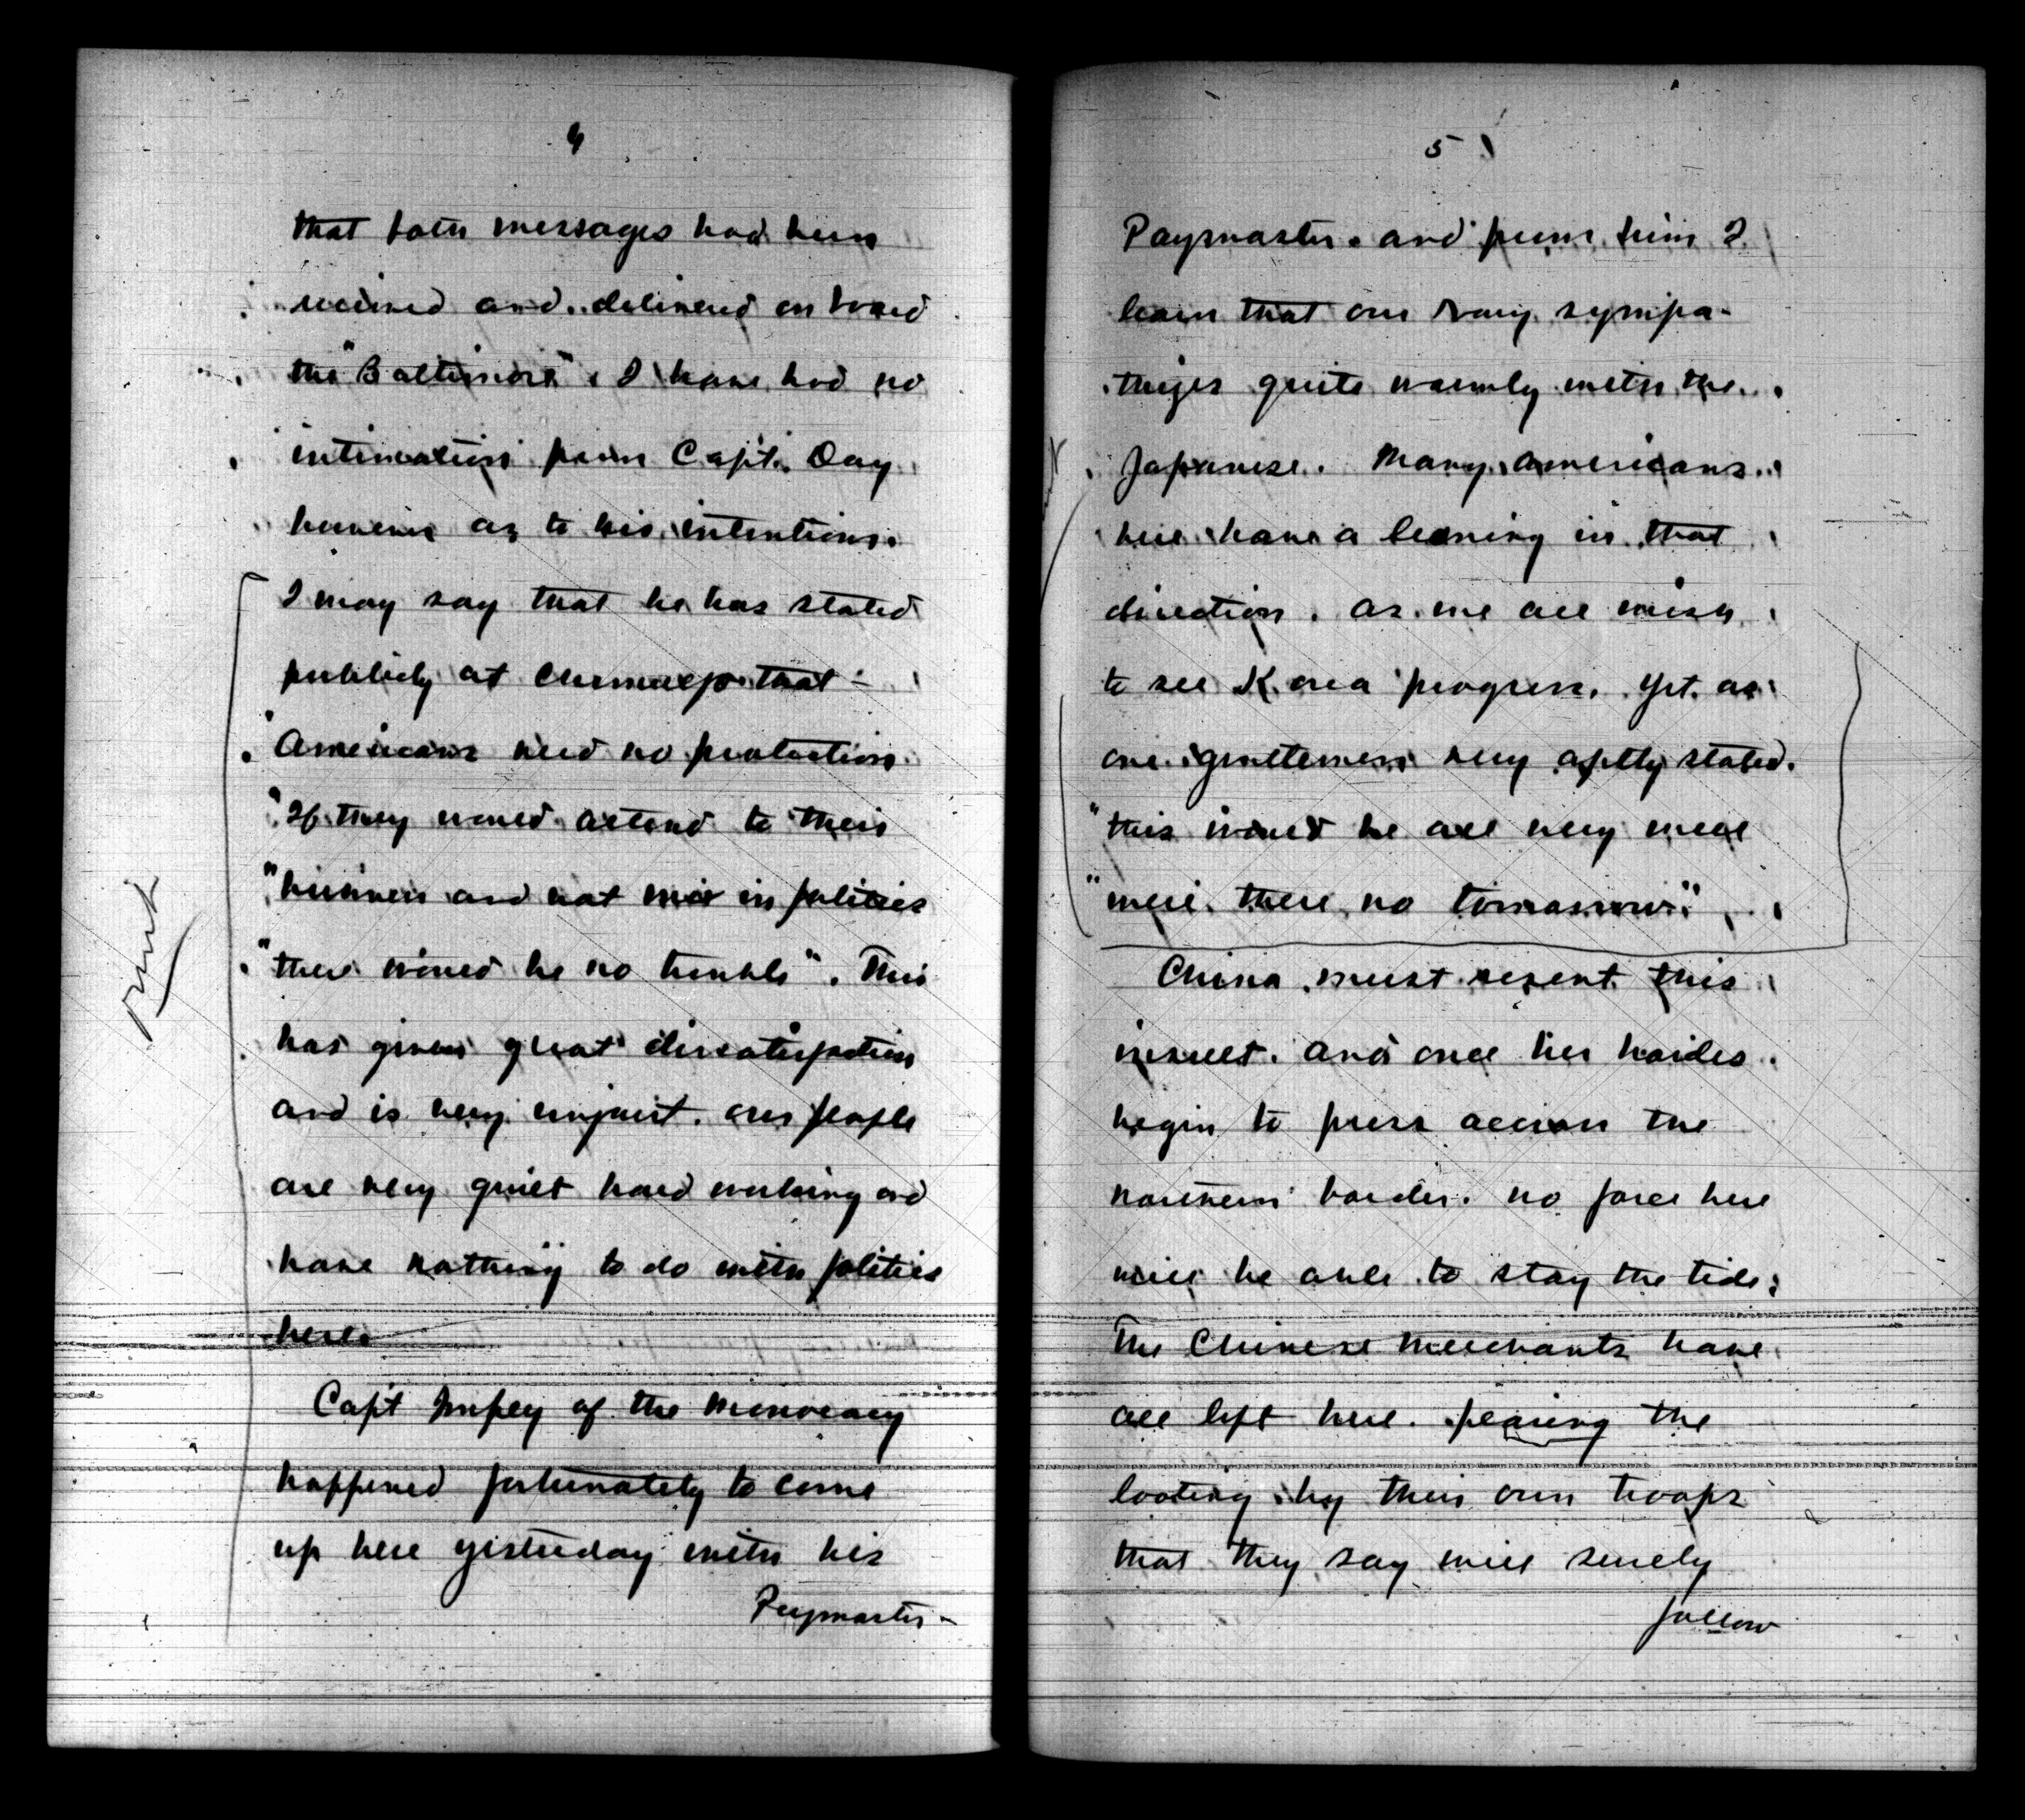 4
that both messages had been
received and delivered on board
the "Baltimore". I have had no
intimation from Capt. Day
however as to his intentions.
I may say that he has stated
publicly at Chemulpo that -
"Americans need no protection.
"If they would attend to their
"business and not mix in politics
"there would be no trouble". This
has given great dissatisfaction
and is very unjust. our people
are very quiet hard working and
have nothing to do with politics
here.
Capt Impey of the Monocacy
happened fortunately to come
up here yisterday with his
Paymaster -
Omit
5
Paymaster. and from him I
learn that our Navy sympa-
thizes quite warmly with the
Japanese. Many Americans
here have a leaning in that
direction. as we all wish
to see Korea progress. Yet. as
one gentleman very aptly stated.
"this would be all very well
"were there no tomorrow".
China must resent this
insult. and once her hordes
begin to press across the
northern border. no force here
will be able to stay the tide;
The Chinese Merchants have
all left here. fearing the
looting by their own troops
that they say will surely
follow